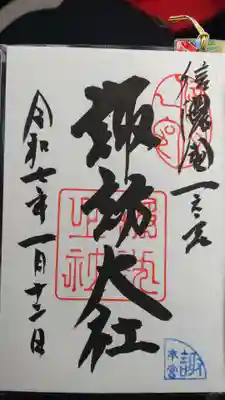 信濃國一之宮
諏訪大社
令和七年一月十二日
諏
本宮